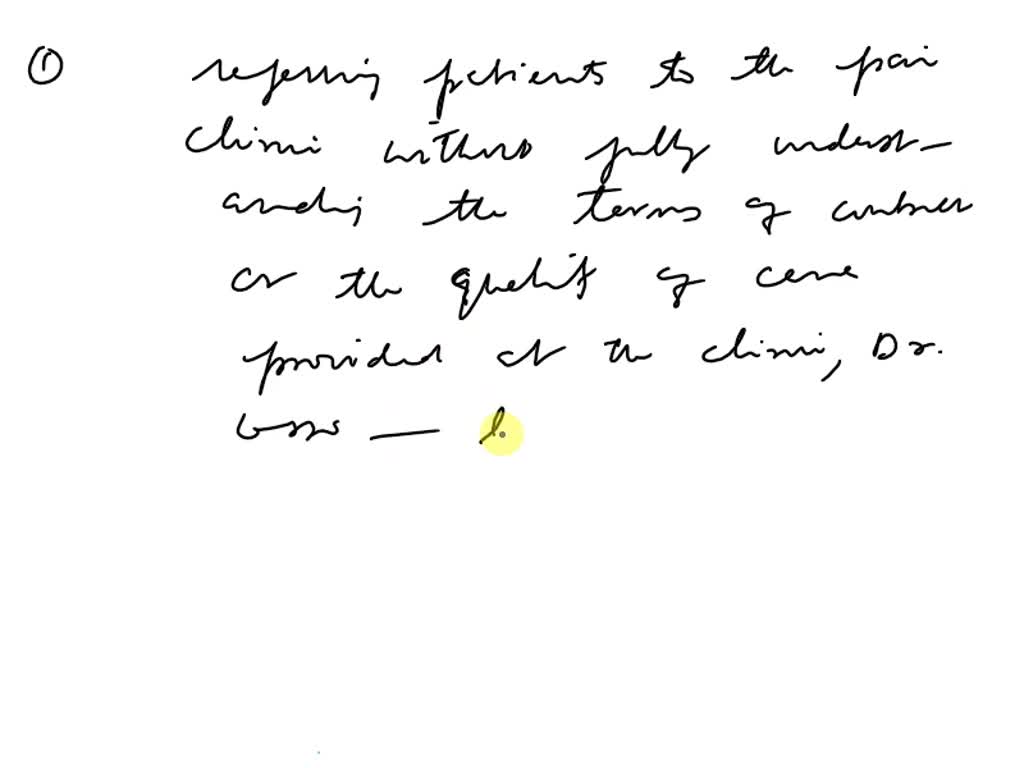 ① referring patients to the pain
clinic without fully underst-
anding the terms of contract
or the quality of care
provided at the clinic, Dr.
—